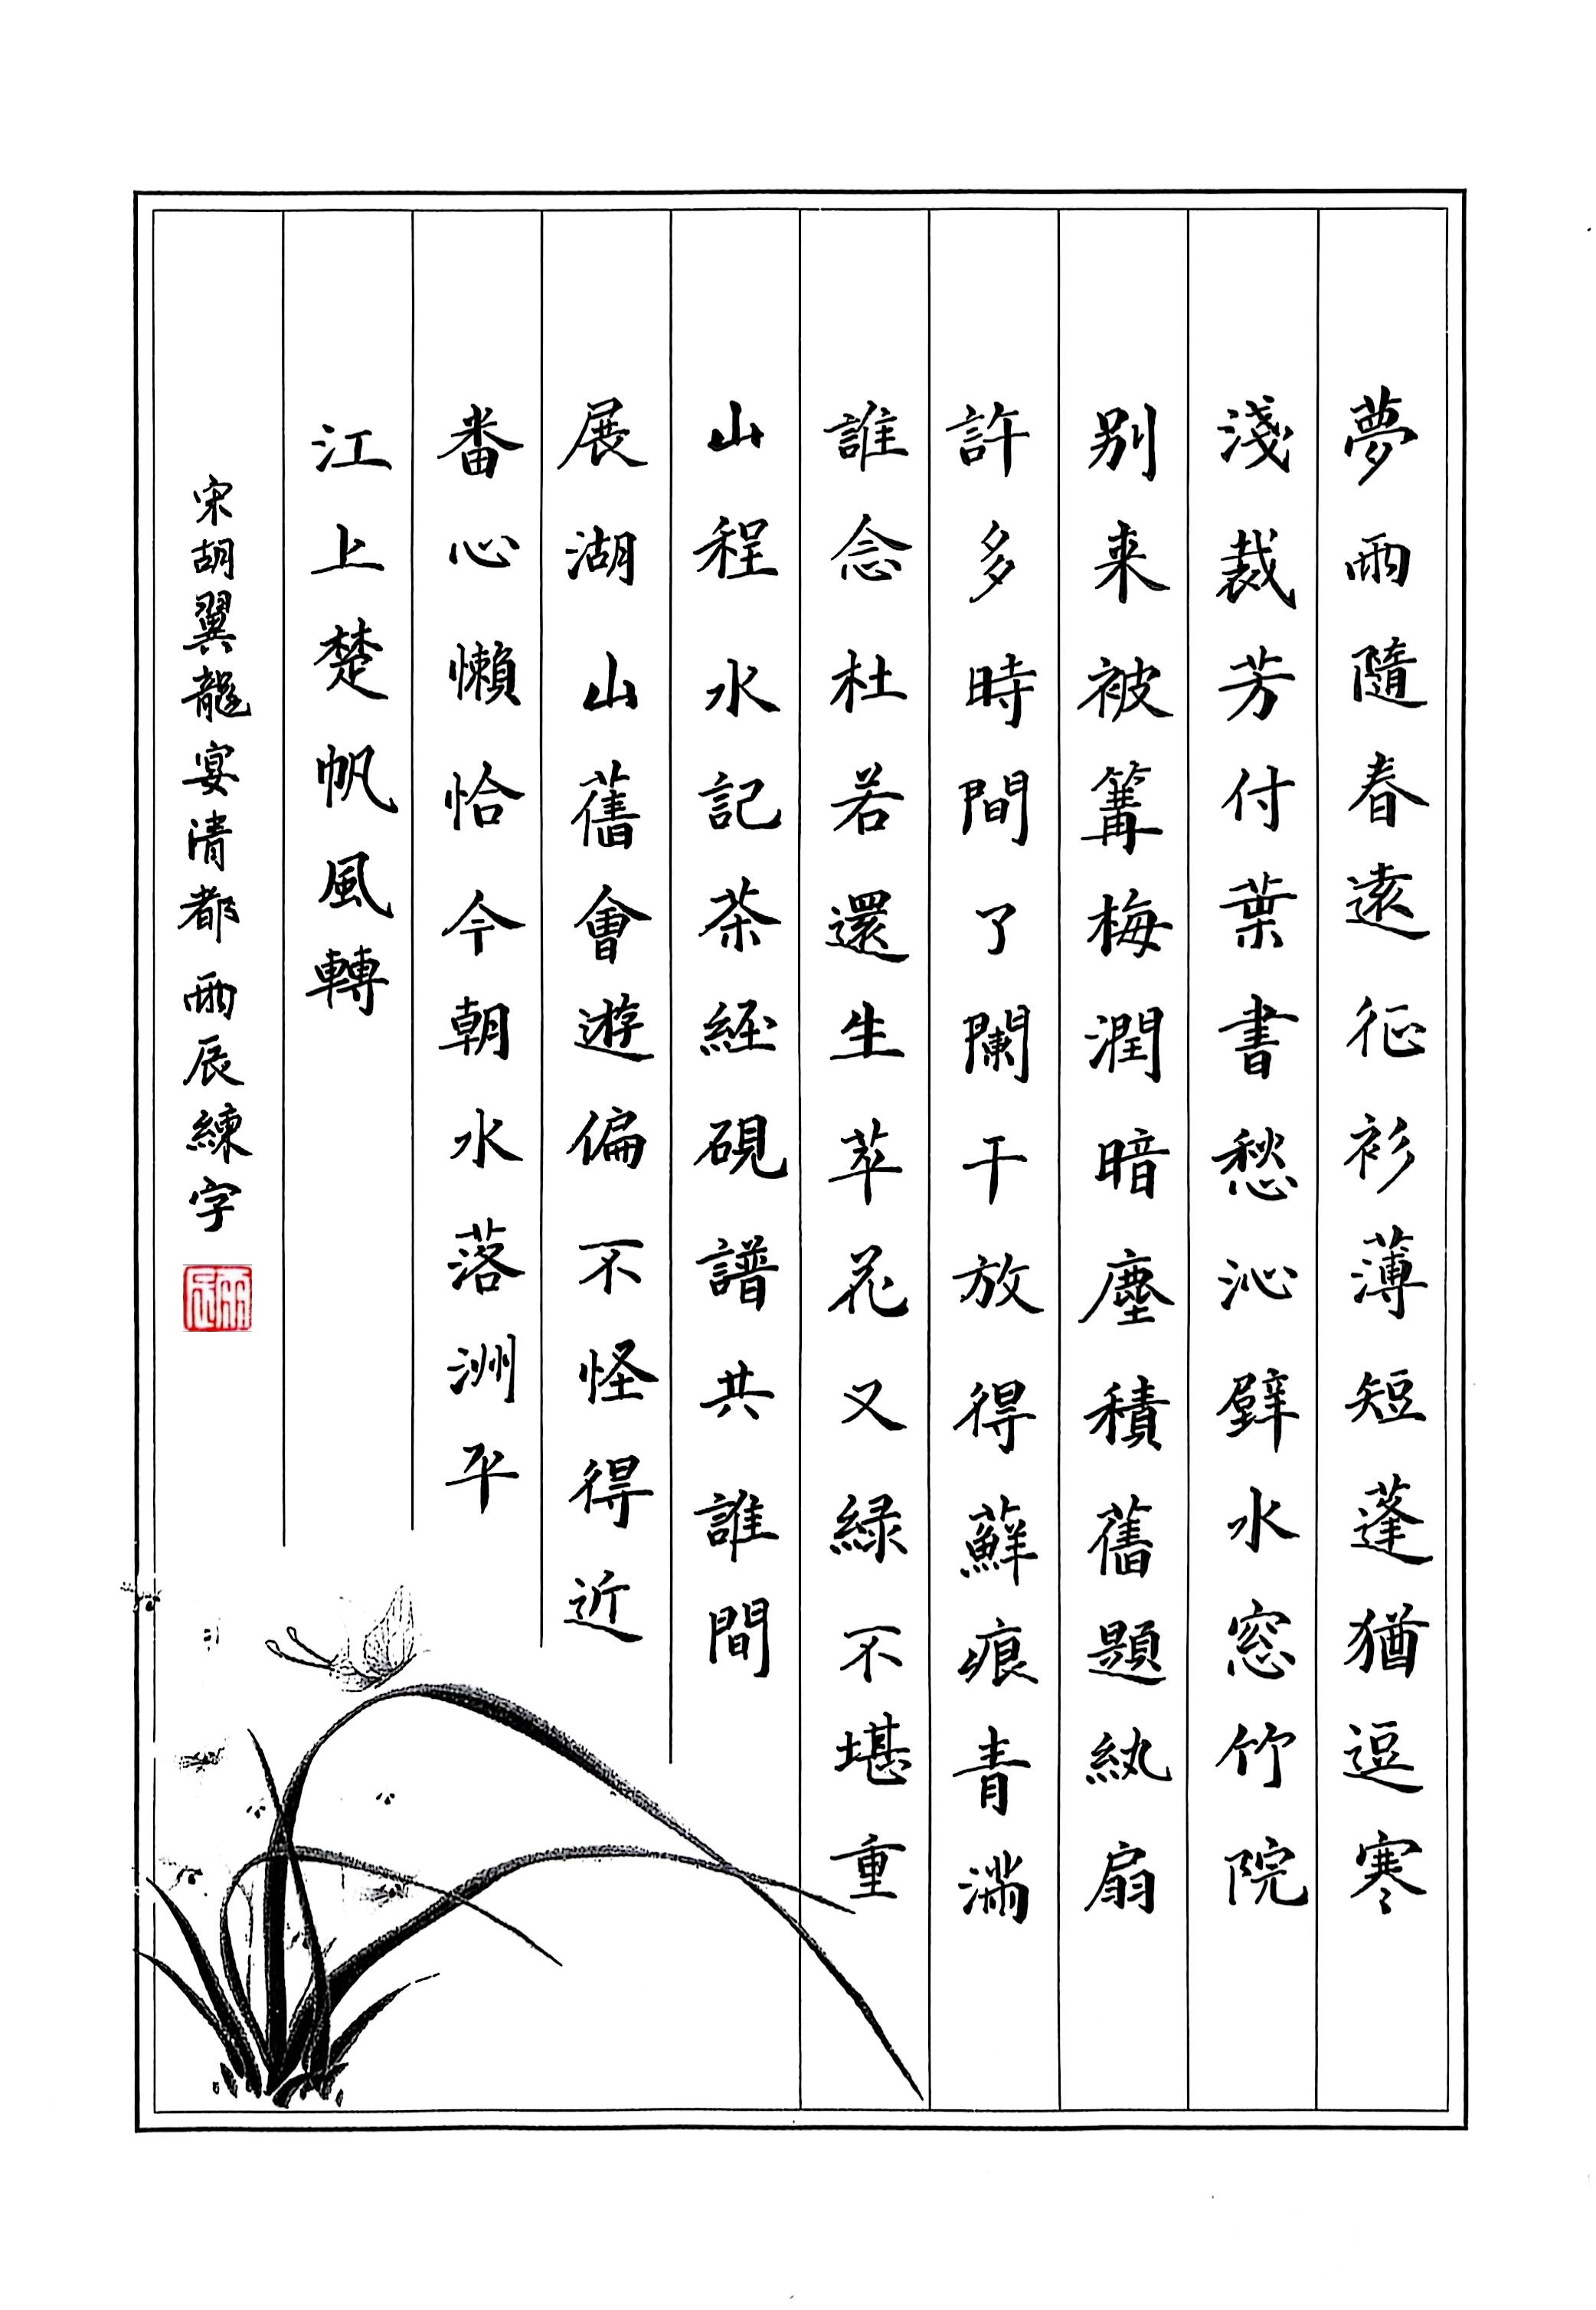 夢雨隨春遠征衫薄短蓬猶逗寒
淺裁芳付葉書愁沁壁水窓竹院
别来被篝梅潤暗塵積舊題紈扇
許多時間了闌干放得蘚痕青滿
誰念杜若還生萃花又緑不堪重
山程水記茶経硯譜共誰間
展湖山舊會遊偏不怪得近
番心懶恰今朝水落洲平
江上楚帆風轉
宋胡翼龍宴清都 雨辰練字
雨辰